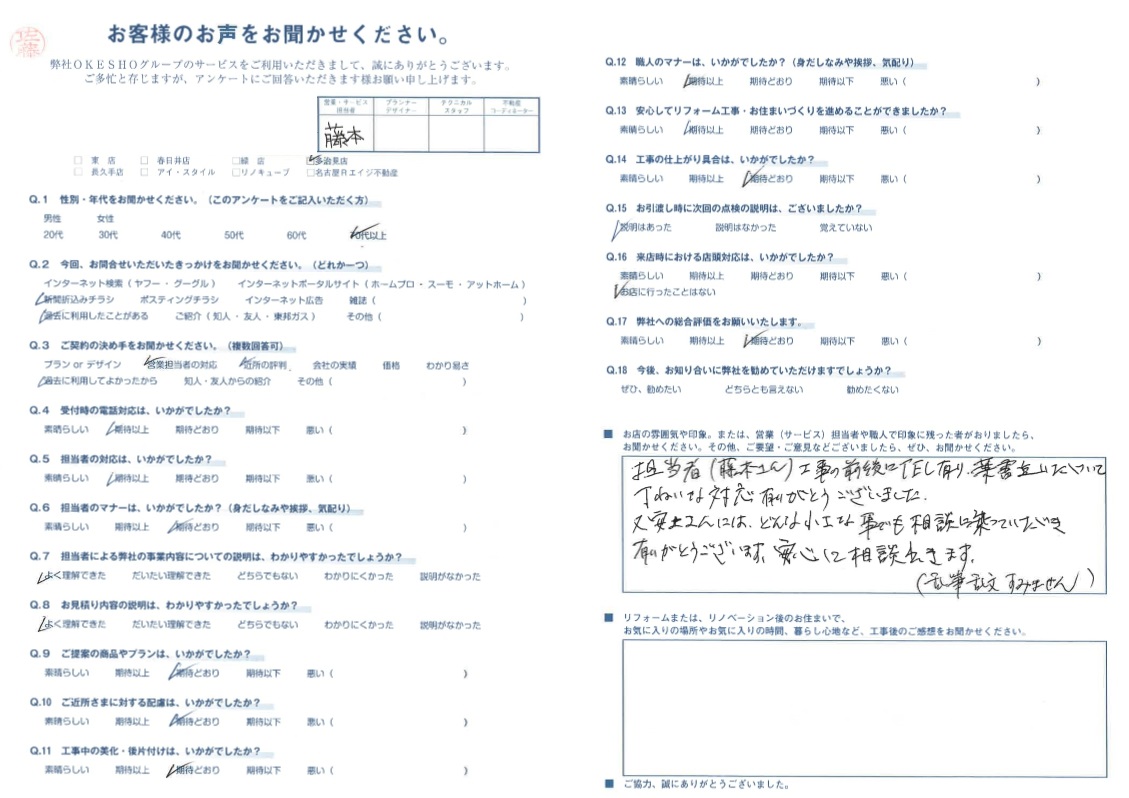 佐藤
お客様のお声をお聞かせください。
弊社OKESHOグループのサービスをご利用いただきまして、誠にありがとうございます。
ご多忙と存じますが、アンケートにご回答いただきます様お願い申し上げます。
営業・サービス担当者 プランナーデザイナー テクニカルスタッフ 不動産コーディネーター
藤本
東 店 春日井店 緑 店 多治見店
長久手店 アイ・スタイル リノキューブ 名古屋Rエイジ不動産
Q.1 性別・年代をお聞かせください。（このアンケートをご記入いただく方）
男性 女性
20代 30代 40代 50代 60代 70代以上
Q.2 今回、お問合せいただいたきっかけをお聞かせください。（どれか一つ）
インターネット検索（ヤフー・グーグル） インターネットポータルサイト（ホームプロ・スーモ・アットホーム）
新聞折込みチラシ ポスティングチラシ インターネット広告 雑誌（ ）
過去に利用したことがある ご紹介（知人・友人・東邦ガス） その他（ ）
Q.3 ご契約の決め手をお聞かせください。（複数回答可）
プラン or デザイン 営業担当者の対応 近所の評判 会社の実績 価格 わかり易さ
過去に利用してよかったから 知人・友人からの紹介 その他（ ）
Q.4 受付時の電話対応は、いかがでしたか？
素晴らしい 期待以上 期待どおり 期待以下 悪い（ ）
Q.5 担当者の対応は、いかがでしたか？
素晴らしい 期待以上 期待どおり 期待以下 悪い（ ）
Q.6 担当者のマナーは、いかがでしたか？（身だしなみや挨拶、気配り）
素晴らしい 期待以上 期待どおり 期待以下 悪い（ ）
Q.7 担当者による弊社の事業内容についての説明は、わかりやすかったでしょうか？
よく理解できた だいたい理解できた どちらでもない わかりにくかった 説明がなかった
Q.8 お見積り内容の説明は、わかりやすかったでしょうか？
よく理解できた だいたい理解できた どちらでもない わかりにくかった 説明がなかった
Q.9 ご提案の商品やプランは、いかがでしたか？
素晴らしい 期待以上 期待どおり 期待以下 悪い（ ）
Q.10 ご近所さまに対する配慮は、いかがでしたか？
素晴らしい 期待以上 期待どおり 期待以下 悪い（ ）
Q.11 工事中の美化・後片付けは、いかがでしたか？
素晴らしい 期待以上 期待どおり 期待以下 悪い（ ）
Q.12 職人のマナーは、いかがでしたか？（身だしなみや挨拶、気配り）
素晴らしい 期待以上 期待どおり 期待以下 悪い（ ）
Q.13 安心してリフォーム工事・お住まいづくりを進めることができましたか？
素晴らしい 期待以上 期待どおり 期待以下 悪い（ ）
Q.14 工事の仕上がり具合は、いかがでしたか？
素晴らしい 期待以上 期待どおり 期待以下 悪い（ ）
Q.15 お引渡し時に次回の点検の説明は、ございましたか？
説明はあった 説明はなかった 覚えていない
Q.16 来店時における店頭対応は、いかがでしたか？
素晴らしい 期待以上 期待どおり 期待以下 悪い（ ）
お店に行ったことはない
Q.17 弊社への総合評価をお願いいたします。
素晴らしい 期待以上 期待どおり 期待以下 悪い（ ）
Q.18 今後、お知り合いに弊社を勧めていただけますでしょうか？
ぜひ、勧めたい どちらとも言えない 勧めたくない
■ お店の雰囲気や印象。または、営業（サービス）担当者や職人で印象に残った者がおりましたら、
お聞かせください。その他、ご要望・ご意見などございましたら、ぜひ、お聞かせください。
担当者（藤本さん）工事の前後にTEL有り、葉書迄いただいて
丁ねいな対応有がとうございました。
又安土さんには、どんな小さな事でも相談に乗っていただき
有がとうございます、安心して相談出きます。
（乱筆乱文すみません）
■ リフォームまたは、リノベーション後のお住まいで、
お気に入りの場所やお気に入りの時間、暮らし心地など、工事後のご感想をお聞かせください。
■ ご協力、誠にありがとうございました。